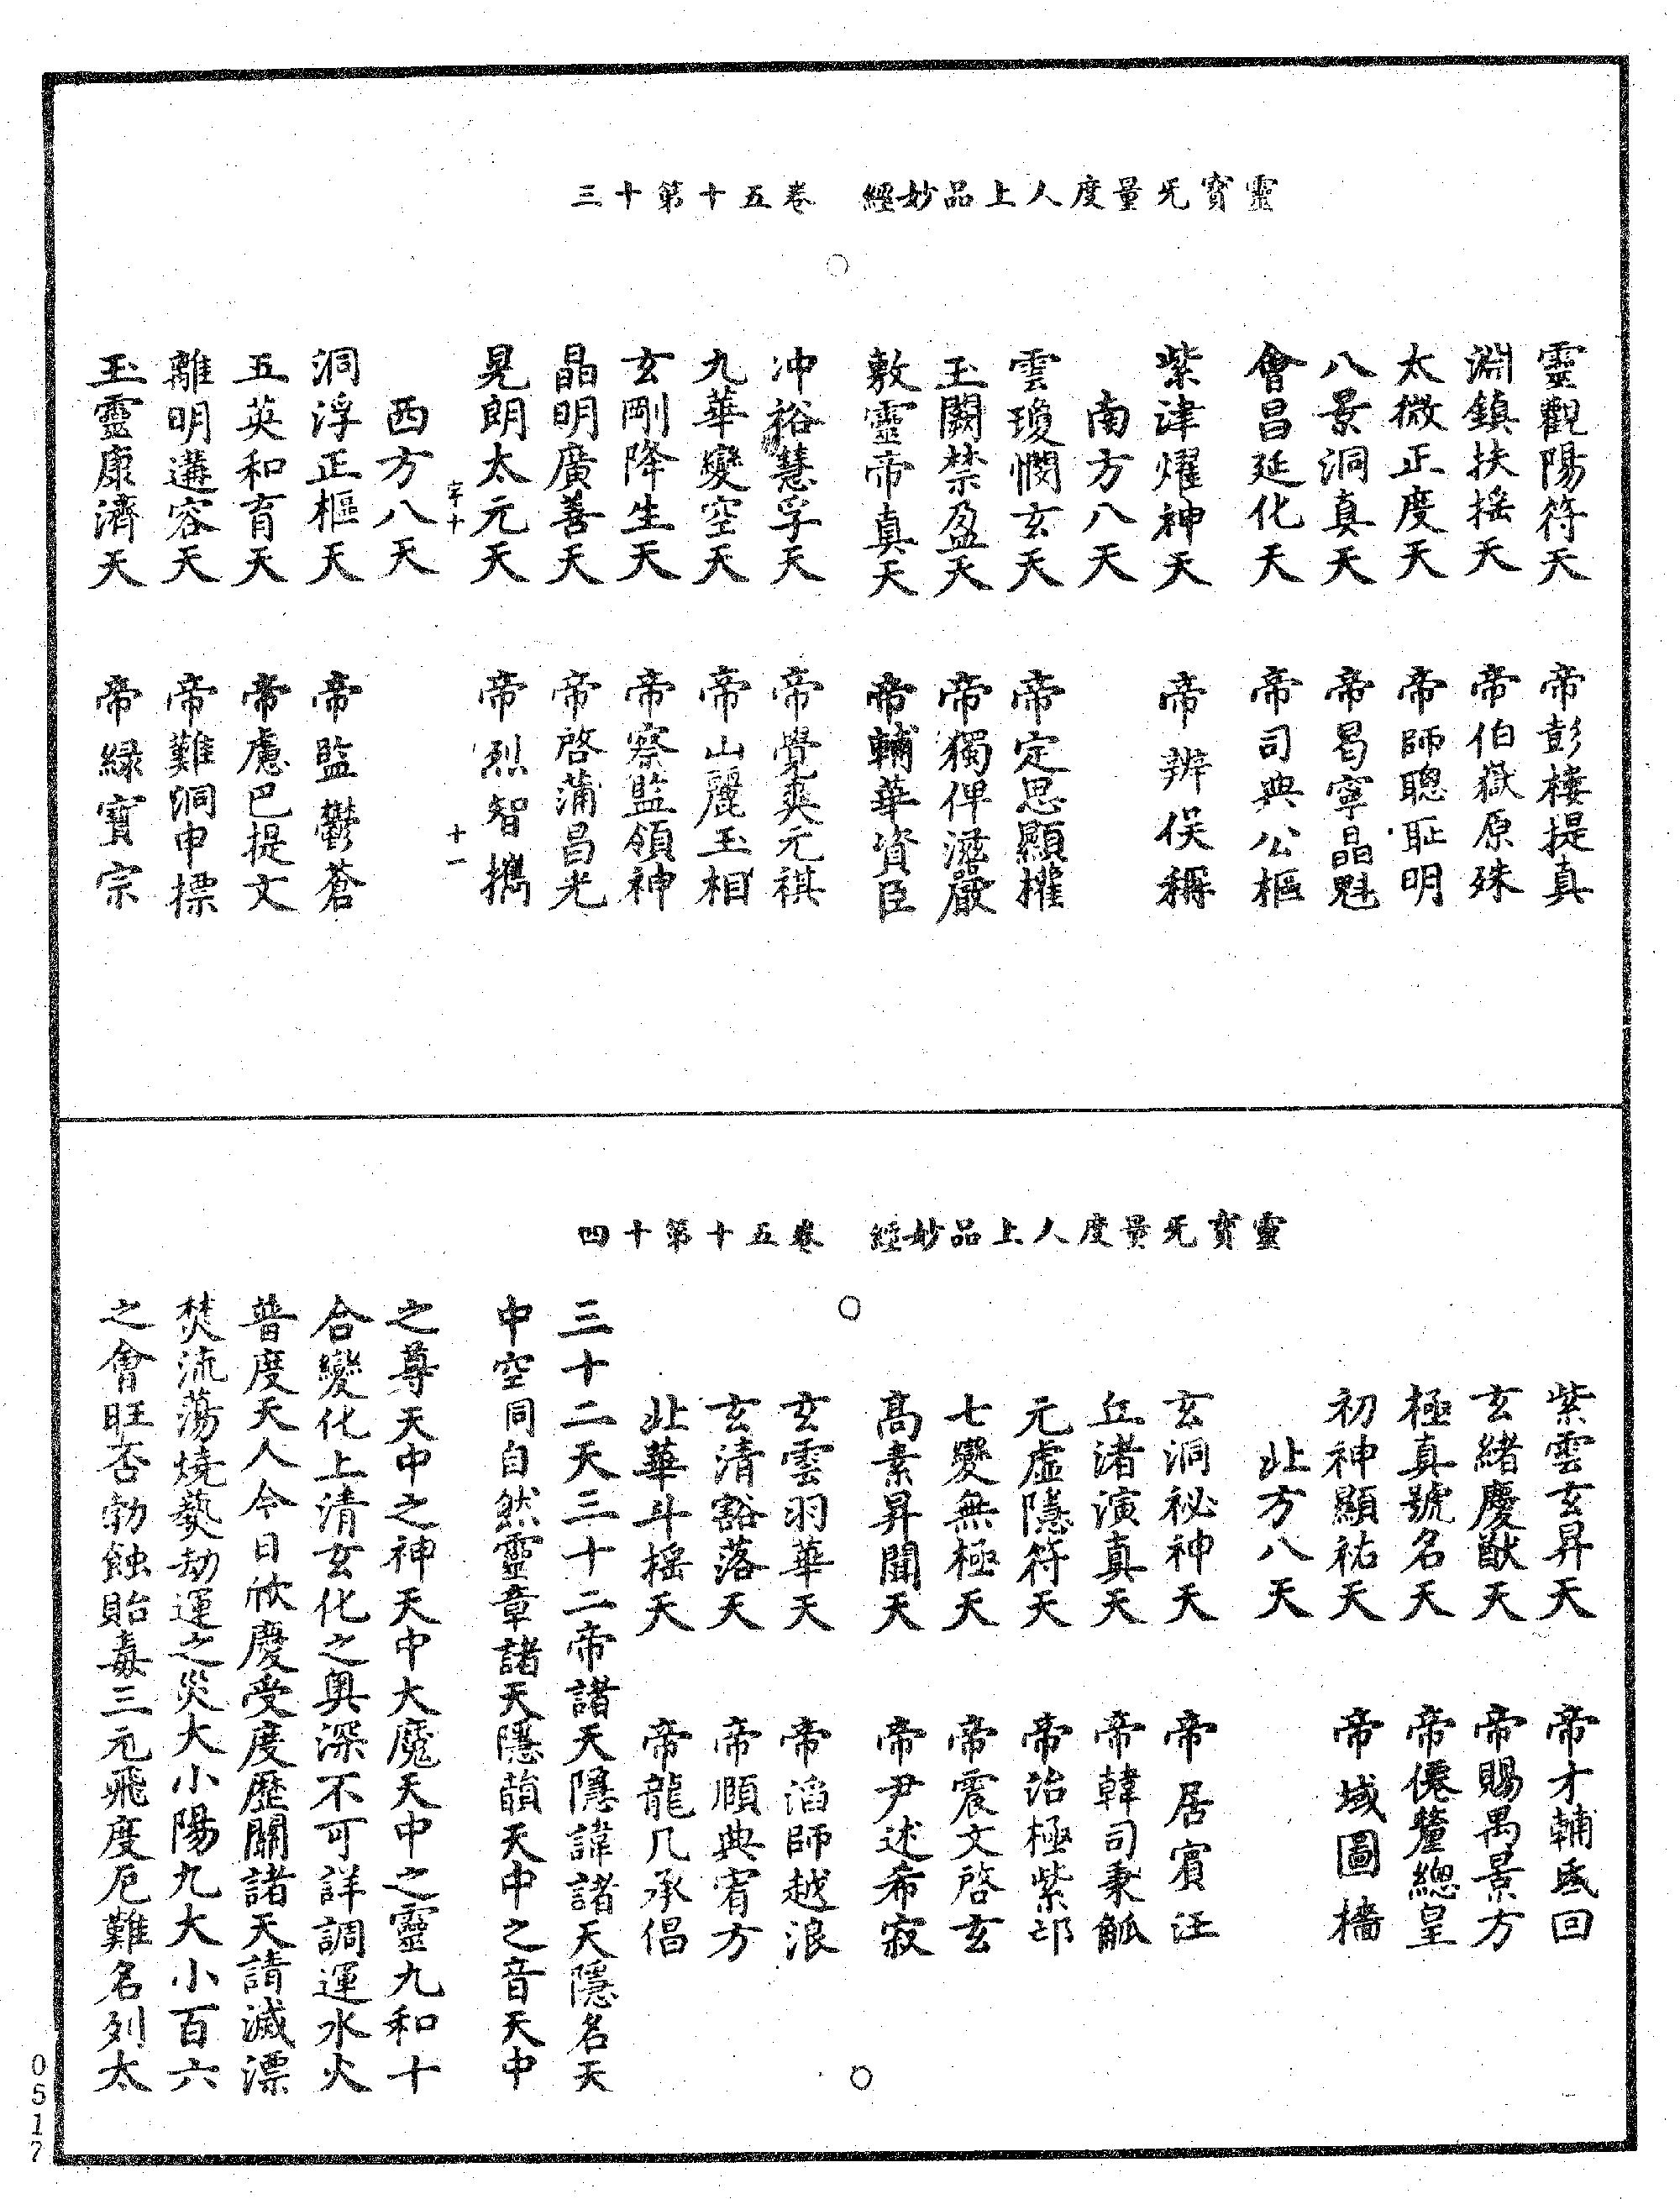 靈寶旡量度人上品妙經　卷五十第十三
靈觀陽符天　帝彭樓提真
淵鎮扶揺天　帝伯嶽原殊
太微正度天　帝師聰耻明
八景洞真天　帝曷寧晶魁
會昌延化天　帝司典公樞
紫津燿神天　帝辨俟稱
南方八天
雲瓊憫玄天　帝定思顯權
玉闕禁盈天　帝獨俾滋嚴
敷靈帝真天　帝輔華資臣
冲裕慧孚天　帝覺爽元祺
九華變空天　帝山麗玉相
玄剛降生天　帝察監領神
晶明廣善天　帝啓蒲昌光
晃朗太元天　帝烈智攜
字十　十一
西方八天
洞浮正樞天　帝監鬱蒼
五英和育天　帝慮巴提文
離明遘容天　帝難洞申摽
玉靈康濟天　帝緑寳宗
靈寳旡量度人上品妙經　卷五十第十四
紫雲玄昇天　帝才輔威回
玄緒慶猷天　帝賜禺景方
極真號名天　帝僊釐緫皇
初神顯祐天　帝域圖檣
北方八天
玄洞祕神天　帝居賔汪
丘渚演真天　帝韓司秉觚
元虚隱符天　帝治極紫邙
七變無極天　帝震文啓玄
高素昇聞天　帝尹述希寂
玄雲羽華天　帝滔師越浪
玄清豁落天　帝順典宥方
北華斗樞天　帝龍几承倡
三十二天三十二帝諸天隱諱諸天隱名天
中空同自然靈章諸天隱韻天中之音天中
之尊天中之神天中大魔天中之靈九和十
合變化上清玄化之奥深不可詳調運水火
普度天人今日欣慶受度歷關諸天請滅漂
焚流蕩燒爇劫運之災大小陽九大小百六
之會旺否勃蝕貽毒三元飛度厄難名列太
0517